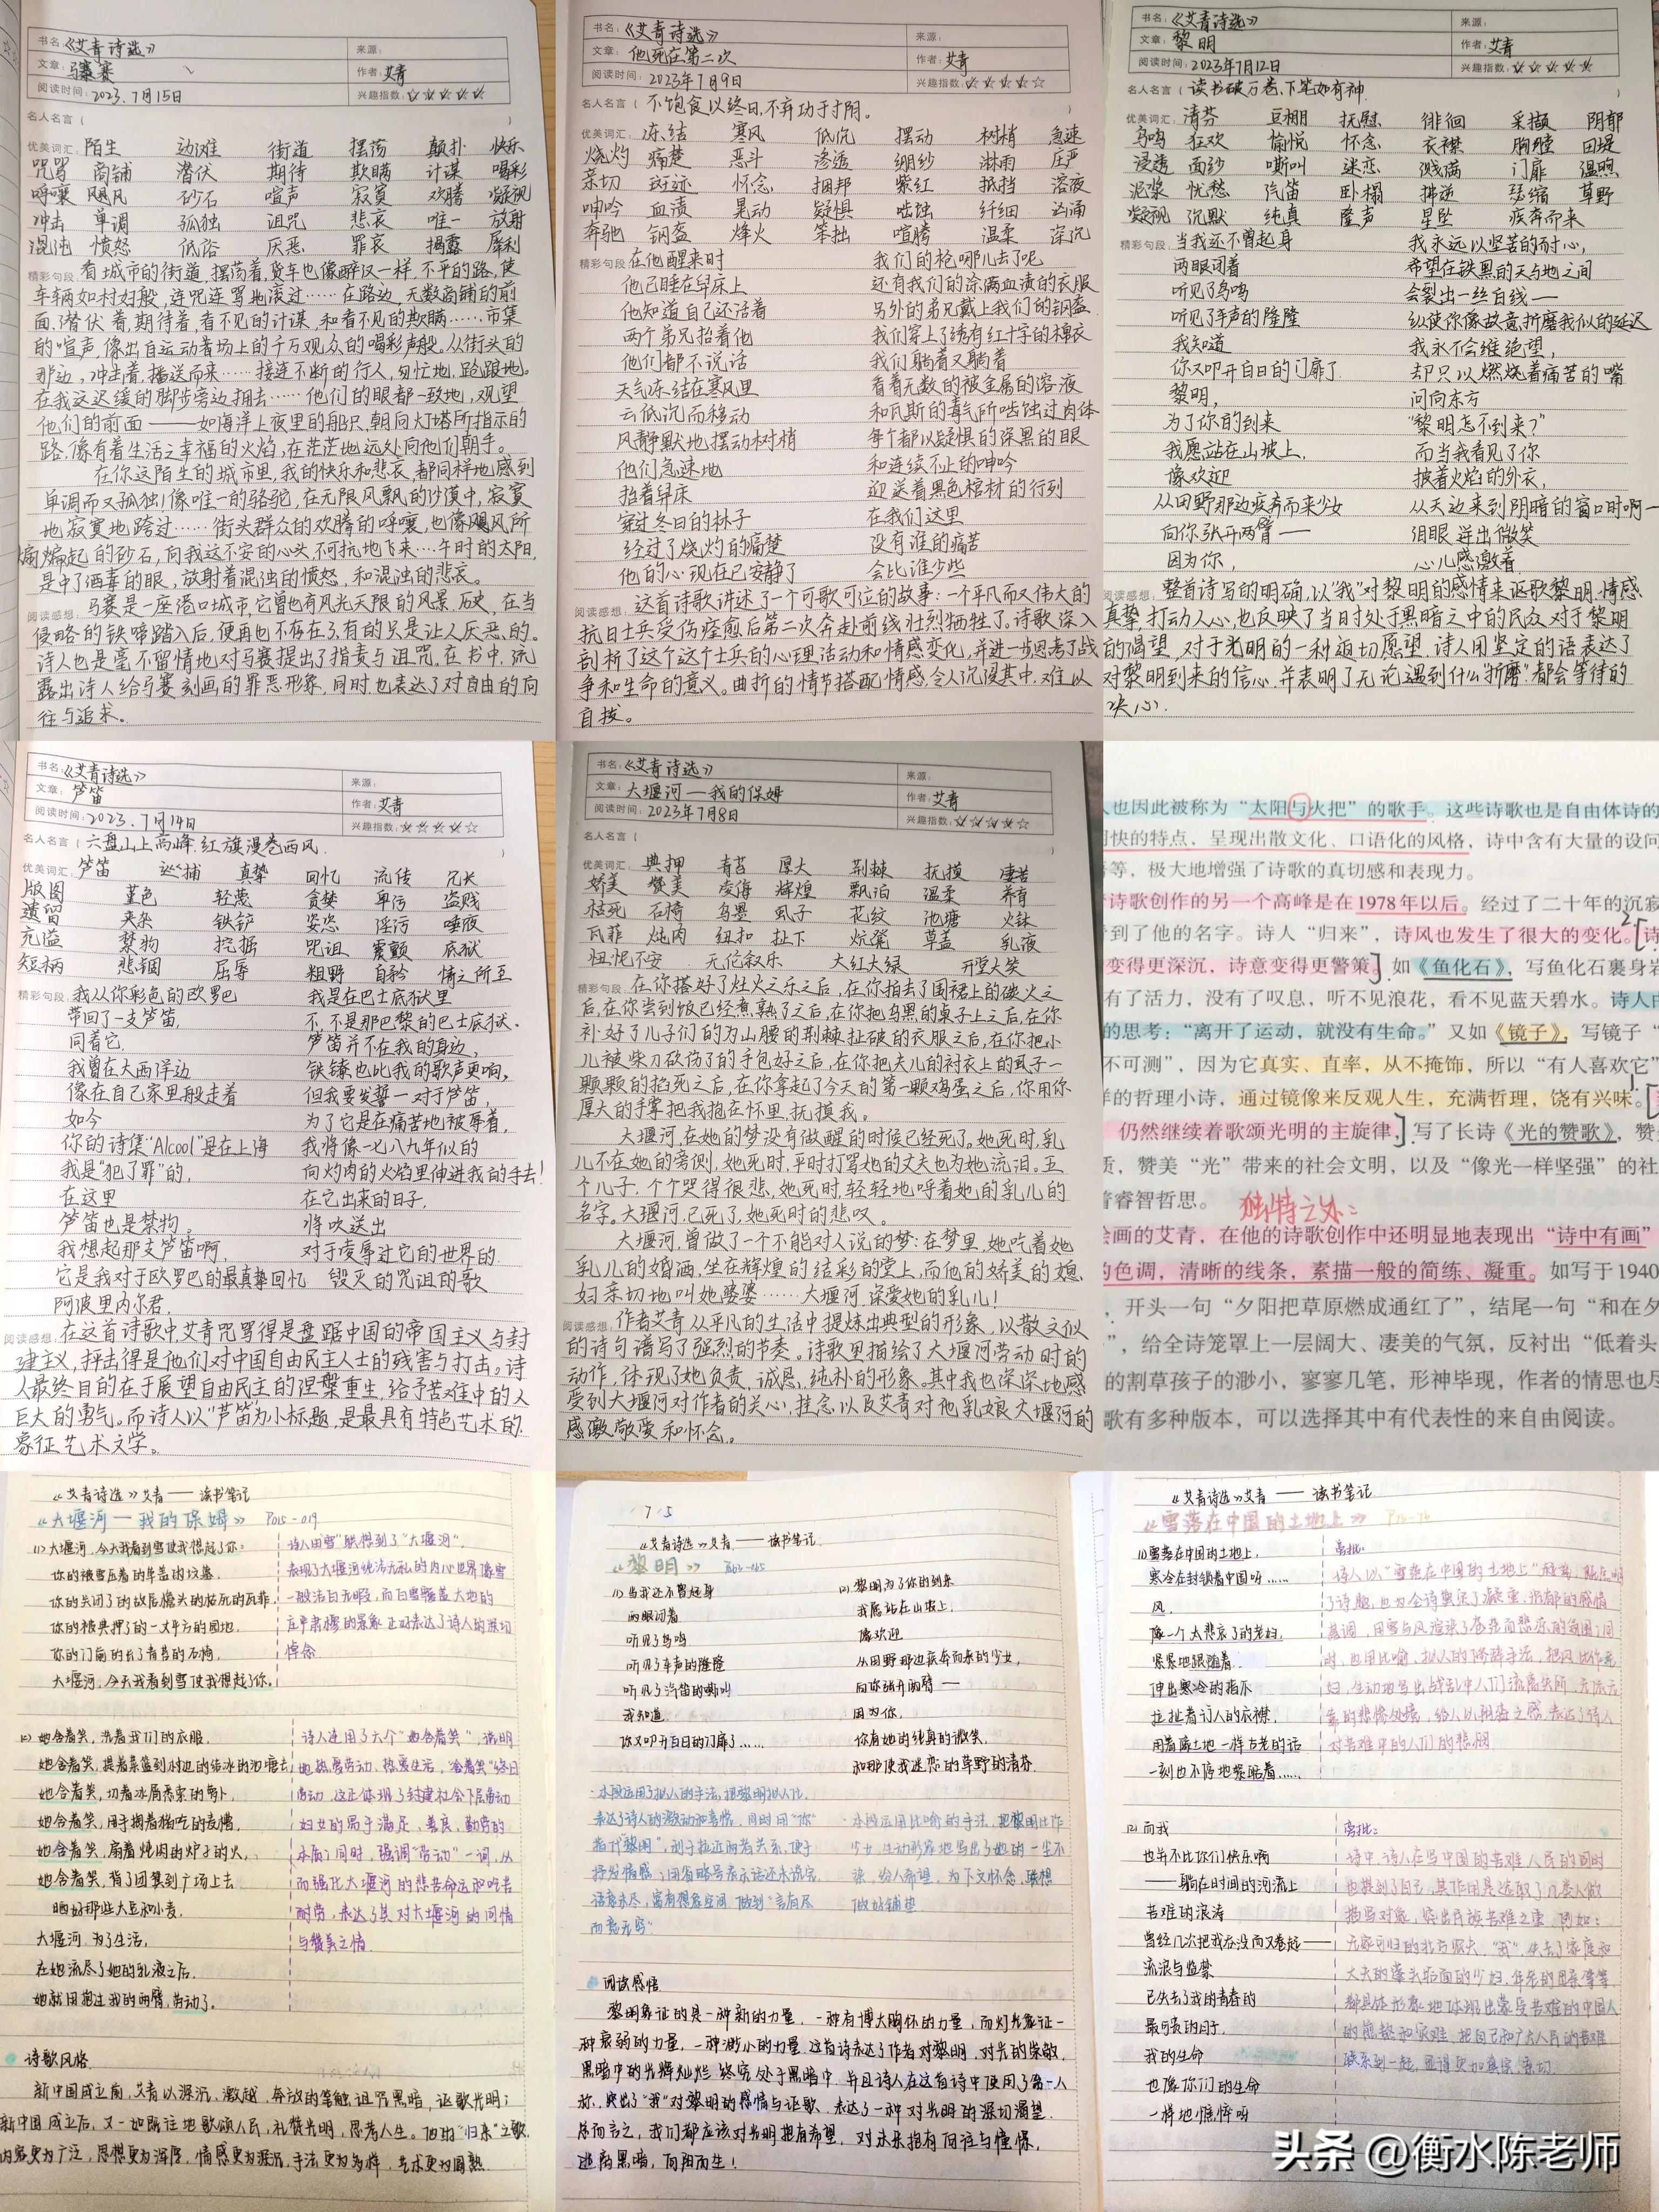 书名:《艾青诗选》
来源:
文章:马赛
作者:艾青
阅读时间:2023.7月15日
兴趣指数:☆☆☆☆☆
名人名言(
优美词汇:陌生 边滩 街道 摆荡 颠扑 快乐
咒骂 商铺 潜伏 期待 欺瞒 计谋 喝彩
呼嚷 飓风 砂石 喧声 寂寞 欢腾 凝视
冲击 单调 孤独 诅咒 悲哀 唯一 放射
混浊 愤怒 低俗 厌恶 罪哀 揭露 犀利
精彩句段:看城市的街道,摆荡着,货车也像醉汉一样,不平的路,使
车辆如村妇般,连咒连骂地滚过……在路边,无数商铺的前
面,潜伏着,期待着,看不见的计谋,和看不见的欺瞒……市集
的喧声,像出自运动者场上的千万观众的喝彩声般。从街头的
那边,冲击着,播送而来……接连不断的行人,匆忙地,跄踉地。
在我这迟缓的脚步旁边拥去……他们的眼都一致地,观望
他们的前面——如海洋上夜里的船只,朝向灯塔所指示的
路,像有着生活之幸福的火焰,在茫茫地远处向他们朝手。
在你这陌生的城市里,我的快乐和悲哀,都同样地感到
单调而又孤独!像唯一的骆驼,在无限风飘的沙漠中,寂寞
地寂寞地跨过……街头群众的欢腾的呼嚷,也像飓风所
煽起的砂石,向我这不安的心头不可抗地飞来……午时的太阳,
是中了酒毒的眼,放射着混浊的愤怒,和混浊的悲哀。
阅读感想:马赛是一座港口城市,它曾也有风光无限的风景,历史,在当
侵略的铁啼踏入后,便再也不存在了,有的只是让人厌恶的。
诗人也是毫不留情地对马赛提出了指责与诅咒。在书中,流
露出诗人给马赛刻画的罪恶形象,同时也表达了对自由的向
往与追求。
书名:《艾青诗选》
来源:
文章:他死在第二次
作者:艾青
阅读时间:2023年7月9日
兴趣指数:☆☆☆☆☆
名人名言(不饱食以终日,不弃功于寸阴。
优美词汇:冻结 寒风 低沉 摆动 树梢 急速
烧灼 痛楚 恶斗 渗透 绷纱 淋雨 庄严
亲切 斑迹 怀念 捆绑 紫红 抵挡 溶液
呻吟 血渍 晃动 疑惧 啮蚀 纤细 汹涌
奔驰 钢盔 烽火 笨拙 喧腾 温柔 深沉
精彩句段:在他醒来时 我们的枪哪儿去了呢
他已睡在舁床上 还有我们的涂满血渍的衣服
他知道自己还活着 另外的弟兄戴上我们的钢盔
两个弟兄抬着他 我们穿上了绣有红十字的棉衣
他们都不说话 我们躺着又躺着
天气冻结在寒风里 看着无数的被金属的溶液
云低沉而移动 和瓦斯的毒气所啮蚀过肉体
风静默地摆动树梢 每个都以疑惧的深黑的眼
他们急速地 和连续不止的呻吟
抬着舁床 迎送着黑色棺材的行列
穿过冬日的林子 在我们这里
经过了烧灼的痛楚 没有谁的痛苦
他的心现在已安静了 会比谁少些
阅读感想:这首诗歌讲述了一个可歌可泣的故事:一个平凡而又伟大的
抗日士兵受伤痊愈后第二次奔赴前线壮烈牺牲了。诗歌深入
剖析了这个这个士兵的心理活动和情感变化,并进一步思考了战
争和生命的意义。曲折的情节搭配情感,令人沉浸其中,难以
自拔。
书名:《艾青诗选》
来源:
文章:黎明
作者:艾青
阅读时间:2023年7月12日
兴趣指数:☆☆☆☆☆
名人名言(读书破万卷,下笔如有神
优美词汇:清芬 豆棚 抚慰 徘徊 采撷 阴郁
鸟鸣 狂欢 愉悦 怀念 衣襟 胸膛 田堤
浸透 面纱 嘶叫 迷恋 溅满 门扉 温煦
泥浆 忧愁 汽笛 卧榻 拂逆 瑟缩 草野
凝视 沉默 纯真 隆声 星坠 疾奔而来
精彩句段:当我还不曾起身 我永远以坚苦的耐心,
两眼闭着 希望在铁黑的天与地之间
听见了鸟鸣 会裂出一丝白线—
听见了车声的隆隆 纵使你像故意折磨我似的延迟
我知道 我永不会绝望,
你又叩开白日的门扉了 却只以燃烧着痛苦的嘴
黎明, 问向东方
为了你的到来 “黎明怎不到来?”
我愿站在山坡上, 而当我看见了你
像欢迎 披着火焰的外衣,
从田野那边疾奔而来少女 从天边来到阴暗的窗口时啊—
向你张开两臂— 泪眼迸出微笑
因为你, 心儿感激着
阅读感想:整首诗写的明确,以“我”对黎明的感情来讴歌黎明,情感
真挚,打动人心,也反映了当时处于黑暗之中的民众对于黎明
的渴望,对于光明的一种迫切愿望,诗人用坚定的语表达了
对黎明到来的信心,并表明了无论遇到什么“折磨”都会等待的
决心.
书名:《艾青诗选》
来源:
文章:芦笛
作者:艾青
阅读时间:2023.7月14日
兴趣指数:☆☆☆☆☆
名人名言(六盘山上高峰,红旗漫卷西风
优美词汇:芦笛 巡捕 真挚 回忆 流传 兄长
版图 堇色 轻蔑 贪婪 卑污 盗贱
遗留 夹杂 铁铲 姿态 淫污 唾液
充溢 禁物 挖掘 咒诅 震颤 底狱
短柄 悲悯 屈辱 粗野 自矜 情之所至
精彩句段:我从你彩色的欧罗巴 我是在巴士底狱里
带回了一支芦笛, 不,不是那巴黎的巴士底狱.
同着它, 芦笛并不在我的身边,
我曾在大西洋边 铁镣也比我的歌声更响,
像在自己家里般走着 但我要发誓—对于芦笛,
如今 为了它是在痛苦地被辱着,
你的诗集“Alcool”是在上海 我将像一七八九年似的
我是“犯了罪”的, 向灼肉的火焰里伸进我的手去!
在这里 在它出来的日子,
芦笛也是禁物。 将吹送出
我想起那支芦笛啊, 对于凌辱过它的世界的
它是我对于欧罗巴的最真挚回忆 毁灭的咒诅的歌
阿波里内尔君,
阅读感想:在这首诗歌中,艾青咒骂得是盘踞中国的帝国主义与封
建主义,抨击得是他们对中国自由民主人士的残害与打击。诗
人最终目的在于展望自由民主的涅槃重生,给予苦难中的人
巨大的勇气。而诗人以“芦笛”为小标题,是最具有特色艺术的
象征艺术文学。
书名:《艾青诗选》
来源:
文章:大堰河—我的保姆
作者:艾青
阅读时间:2023年7月8日
兴趣指数:☆☆☆☆☆
名人名言(
优美词汇:典押 青苔 厚大 荆棘 抚摸 凄苦
娇美 赞美 凌侮 辉煌 飘泊 温柔 养育
枯死 石椅 乌黑 虱子 花纹 池塘 火钵
瓦菲 炖肉 纽扣 扯下 炕凳 草盖 乳液
忸怩不安 天伦叙乐 大红大绿 开堂大笑
精彩句段:在你搭好了灶火之乐之后,在你拍去了围裙上的碳火之
后,在你尝到饭已经煮熟了之后,在你把乌黑的桌子上之后,在你
补好了儿子们的为山腰的荆棘扯破的衣服之后,在你把小
儿被柴刀砍伤了的手包好之后,在你把夫儿的衬衣上的虱子一
颗颗的掐死之后,在你拿起了今天的第一颗鸡蛋之后,你用你
厚大的手掌把我抱在怀里,抚摸我。
大堰河,在她的梦没有做醒的时候已经死了。她死时,乳
儿不在她的旁侧,她死时,平时打骂她的丈夫也为她流泪。五
个儿子,个个哭得很悲,她死时,轻轻地呼着她的乳儿的
名字。大堰河,已死了,她死时的悲叹。
大堰河,曾做了一个不能对人说的梦:在梦里,她吃着她
乳儿的婚酒,坐在辉煌的结彩的堂上,而他的娇美的媳
妇亲切地叫她婆婆……大堰河,深爱她的乳儿!
阅读感想:作者艾青从平凡的生活中提炼出典型的形象,以散文似
的诗句谱写了强烈的节奏。诗歌里描绘了大堰河劳动时的
动作,体现了她负责,诚恳,纯朴的形象。其中我也深深地感
受到大堰河对作者的关心,挂念以及艾青对他乳娘大堰河的
感激,敬爱和怀念。
人也因此被称为“太阳与火把”的歌手。这些诗歌也是自由体诗的
明快的特点,呈现出散文化、口语化的风格,诗中含有大量的设问
等,极大地增强了诗歌的真切感和表现力。
诗歌创作的另一个高峰是在1978年以后。经过了二十年的沉寂
看到了他的名字。诗人“归来”,诗风也发生了很大的变化。诗
变得更深沉,诗意变得更警策。如《鱼化石》,写鱼化石裹身岩
有了活力,没有了叹息,听不见浪花,看不见蓝天碧水。诗人由
的思考:“离开了运动,就没有生命。”又如《镜子》,写镜子“
不可测”,因为它真实、直率,从不掩饰,所以“有人喜欢它”
样的哲理小诗,通过镜像来反观人生,充满哲理,饶有兴味。
仍然继续着歌颂光明的主旋律,写了长诗《光的赞歌》,赞
质,赞美“光”带来的社会文明,以及“像光一样坚强”的社
睿智哲思。
独特之处:
绘画的艾青,在他的诗歌创作中还明显地表现出“诗中有画”
的色调,清晰的线条,素描一般的简练、凝重。如写于1940
,开头一句“夕阳把草原燃成通红了”,结尾一句“和在夕
”,给全诗笼罩上一层阔大、凄美的气氛,反衬出“低着头
的割草孩子的渺小,寥寥几笔,形神毕现,作者的情思也尽
歌有多种版本,可以选择其中有代表性的来自由阅读。
《艾青诗选》艾青——读书笔记
《大堰河—我的保姆》 P015-019
(1)大堰河,今天我看到雪使我想起了你:
你的被雪压着的草盖的坟墓,
你的关闭了的故居檐头的枯死的瓦菲,
你的被典押了的一丈平方的园地,
你的门前的长了青苔的石椅,
大堰河,今天我看到雪使我想起了你。
诗人由“雪”联想到了“大堰河”.
表现了大堰河纯洁无私的内心世界像雪
一般洁白无暇,而白雪覆盖大地的
庄严肃穆的景象正好表达了诗人的深切
悼念
(2)她含着笑,洗着我们的衣服,
她含着笑,提着菜篮到村边的结冰的池塘去,
她含着笑,切着冰屑悉索的萝卜,
她含着笑,用手掏着猪吃的麦糟,
她含着笑,扇着炖肉的炉子的火,
她含着笑,背了团箕到广场上去
晒好那些大豆和小麦,
大堰河,为了生活,
在她流尽了她的乳液之后,
她就用抱过我的两臂,劳动了。
诗人连用了六个“她含着笑”,说明
她热爱劳动、热爱生活,“含着笑”终日
劳动,这正体现了封建社会下层劳动
妇女的易于满足、善良、勤劳的
本质;同时,强调“劳动”一词,从
而强化大堰河的悲苦命运和吃苦
耐劳,表达了其对大堰河的同情
与赞美之情.
诗歌风格
新中国成立前,艾青以深沉、激越、奔放的笔触诅咒黑暗,讴歌光明;
新中国成立后,又一如既往地歌颂人民,礼赞光明,思考人生。他的“归来”之歌,
内容更为广泛,思想更为浑厚,情感更为深沉,手法更为多样,艺术更为圆熟.
7/5
《艾青诗选》艾青——读书笔记
《黎明》
(1)当我还不曾起身
两眼闭着
听见了鸟鸣
听见了车声的隆隆
听见了汽笛的嘶叫
我知道
你又叩开白日的门扉了……
(2)黎明为了你的到来
我愿站在山坡上,
像欢迎
从田野那边疾奔而来的少女,
向你张开两臂—
因为你,
你有她的纯真的微笑,
和那使我迷恋的草野的清芬
·本段运用了拟人的手法,把黎明拟人化,
表达了诗人的激动和喜悦,同时用“你”
指代“黎明”,利于拉近两者关系,便于
抒发情感;用省略号表示话还未说完,
语意未尽,富有想象空间,做到“言有尽
而意无穷”
·本段运用比喻的手法,把黎明比作
少女,生动形象地写出了她的一尘不
染,给人希望,为下文怀念、联想
做好铺垫
阅读感悟
黎明象征的是一种新的力量,一种有博大胸怀的力量,而灯光象征一
种衰弱的力量,一种渺小的力量.这首诗表达了作者对黎明,对光的崇敬,
黑暗中的光辉灿烂,终究处于黑暗中,并且诗人在这首诗中使用了第一人
称,突出了“我”对黎明的感情与讴歌,表达了一种对光明的深切渴望.
总而言之,我们都应该对光明抱有希望,对未来抱有向往与憧憬,
逃离黑暗,向阳而生!
《艾青诗选》艾青——读书笔记
《雪落在中国的土地上》
(1)雪落在中国的土地上,
寒冷在封锁着中国呀……
风,
像一个太悲哀了的老妇,
紧紧地跟随着,
伸出寒冷的指爪
拉扯着行人的衣襟,
用着像土地一样古老的话
一刻也不停地絮聒着……
旁批:
诗人以“雪落在中国的土地上”
(2)而我
也并不比你们快乐啊
——躺在时间的河流上
苦难的浪涛
曾经几次把我吞没而又卷起——
流浪与监禁
已失去了我的青春的
最可贵的日子,
我的生命
也像你们的生命
一样地憔悴呀
旁批:
诗中,诗人在写中国的苦难人民的同时
也提到了自己,
头条@衡水陈老师